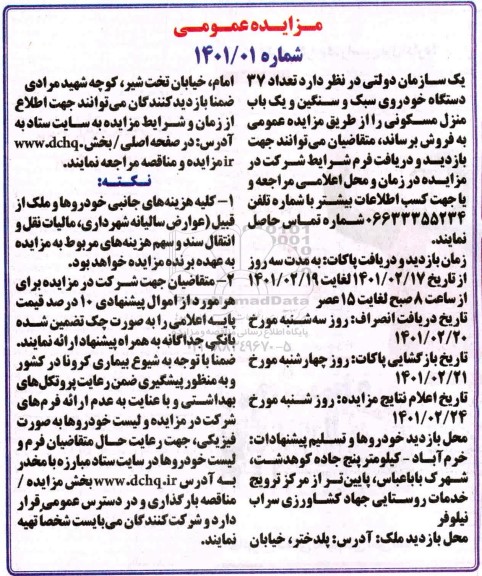 مـزایده عمومی
شماره ۱۴۰۱/۰۱
یک سازمان دولتی در نظر دارد تعداد ۳۷
دستگاه خودروی سبک و سنگین و یک باب
منزل مسکونی را از طریق مزایده عمومی
به فروش برساند، متقاضیان می‌توانند جهت
بازدید و دریافت فرم شرایط شرکت در
مزایده در زمان و محل اعلامی مراجعه و
یا جهت کسب اطلاعات بیشتر با شماره تلفن
۰۶۶۳۳۳۵۵۲۳۴ شماره تماس حاصل
نمایند.
زمان بازدید و دریافت پاکات: به مدت سه روز
از تاریخ ۱۴۰۱/۰۲/۱۷ لغایت ۱۴۰۱/۰۲/۱۹
از ساعت ۸ صبح لغایت ۱۵ عصر
تاریخ دریافت انصراف: روز سه شنبه مورخ
۱۴۰۱/۰۲/۲۰
تاریخ بازگشایی پاکات: روز چهارشنبه مورخ
۱۴۰۱/۰۲/۲۱
تاریخ اعلام نتایج مزایده: روز شنبه مورخ
۱۴۰۱/۰۲/۲۴
محل بازدید خودروها و تسلیم پیشنهادات:
خرم‌آباد - کیلومتر پنج جاده کوهدشت،
شهرک باباعباس، پایین‌تر از مرکز ترویج
خدمات روستایی جهاد کشاورزی سراب
نیلوفر
محل بازدید ملک: آدرس: پلدختر، خیابان
امام، خیابان تخت شیر، کوچه شهید مرادی
ضمنا بازدیدکنندگان می‌توانند جهت اطلاع
از زمان و شرایط مزایده به سایت ستاد به
آدرس: در صفحه اصلی/ بخش www.dchq.
ir مزایده و مناقصه مراجعه نمایند.
نـکـتـه:
۱- کلیه هزینه‌های جانبی خودروها و ملک از
قبیل (عوارض سالیانه شهرداری، مالیات نقل و
انتقال سند و سهم هزینه‌های مربوط به مزایده
به عهده برنده مزایده خواهد بود.
۲- متقاضیان جهت شرکت در مزایده برای
هر مورد از اموال پیشنهادی ۱۰ درصد قیمت
پایه اعلامی را به صورت چک تضمین شده
بانکی جداگانه به همراه پیشنهاد ارائه نمایند.
ضمنا با توجه به شیوع بیماری کرونا در کشور
و به منظور پیشگیری ضمن رعایت پروتکل‌های
بهداشتی و با عنایت به عدم ارائه فرم‌های
شرکت در مزایده و لیست خودروها به صورت
فیزیکی، جهت رعایت حال متقاضیان فرم و
لیست خودروها در سایت ستاد مبارزه با مخدر
به آدرس www.dchq.ir بخش مزایده /
مناقصه بارگذاری و در دسترس عمومی قرار
دارد و شرکت کنندگان می‌بایست شخصا تهیه
نمایند.